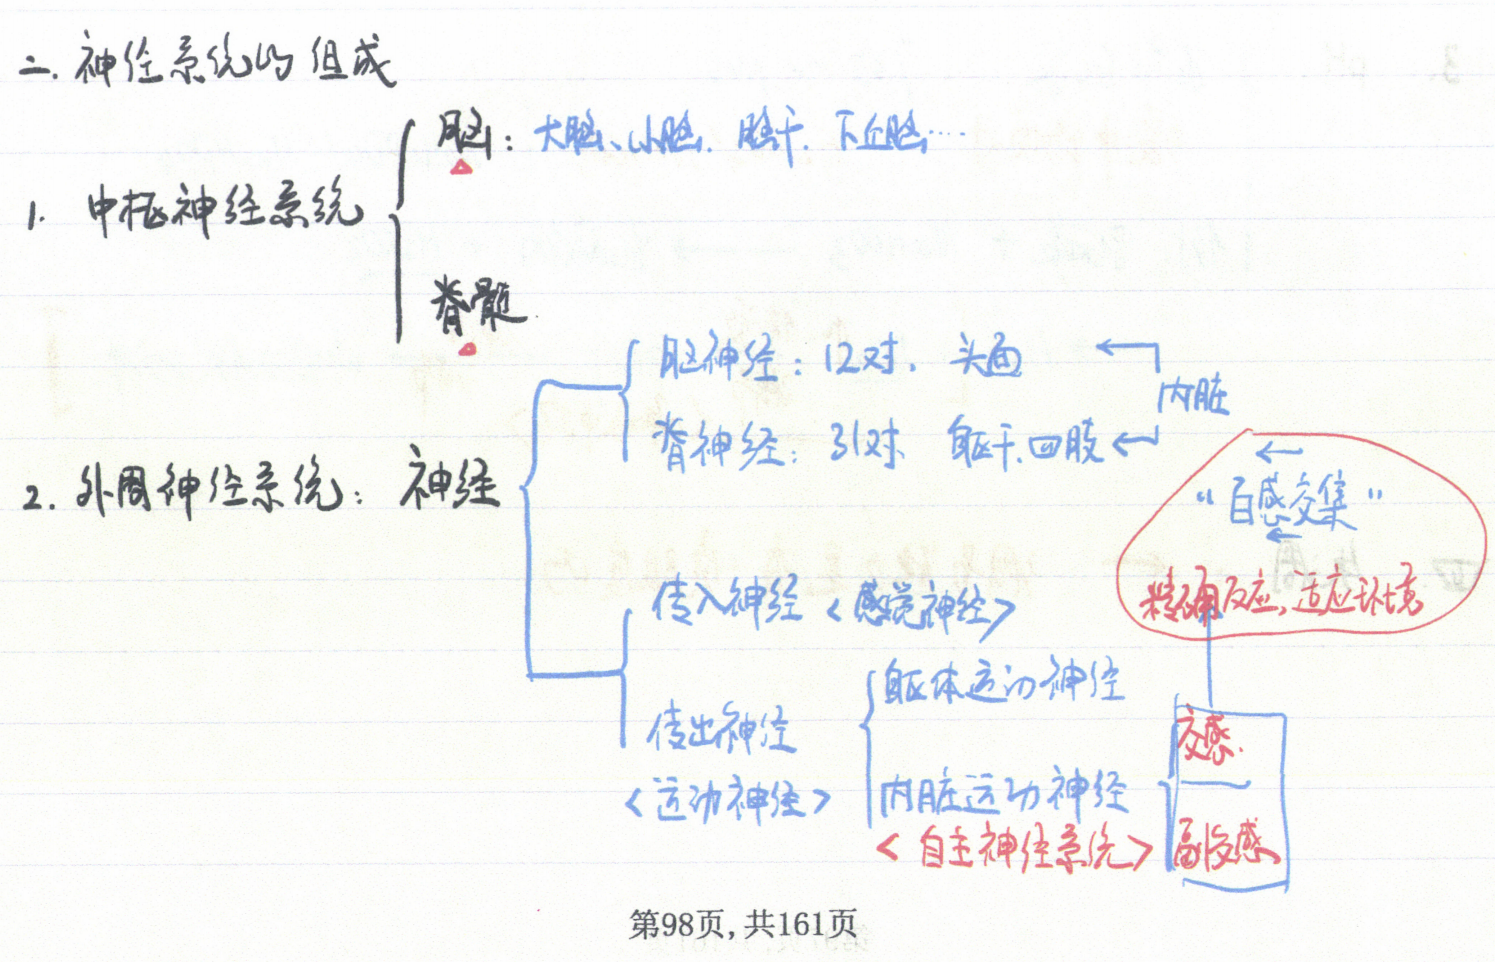 二. 神经系统的组成
脑: 大脑、小脑. 脑干. 下丘脑……
1. 中枢神经系统
脊髓
脑神经: 12对. 头面
内脏
脊神经: 31对 躯干.四肢
2. 外周神经系统: 神经
“百感交集”
精确反应, 适应环境
传入神经<感觉神经>
躯体运动神经
传出神经
交感.
<运动神经>
内脏运动神经
<自主神经系统>
副交感
第98页,共161页